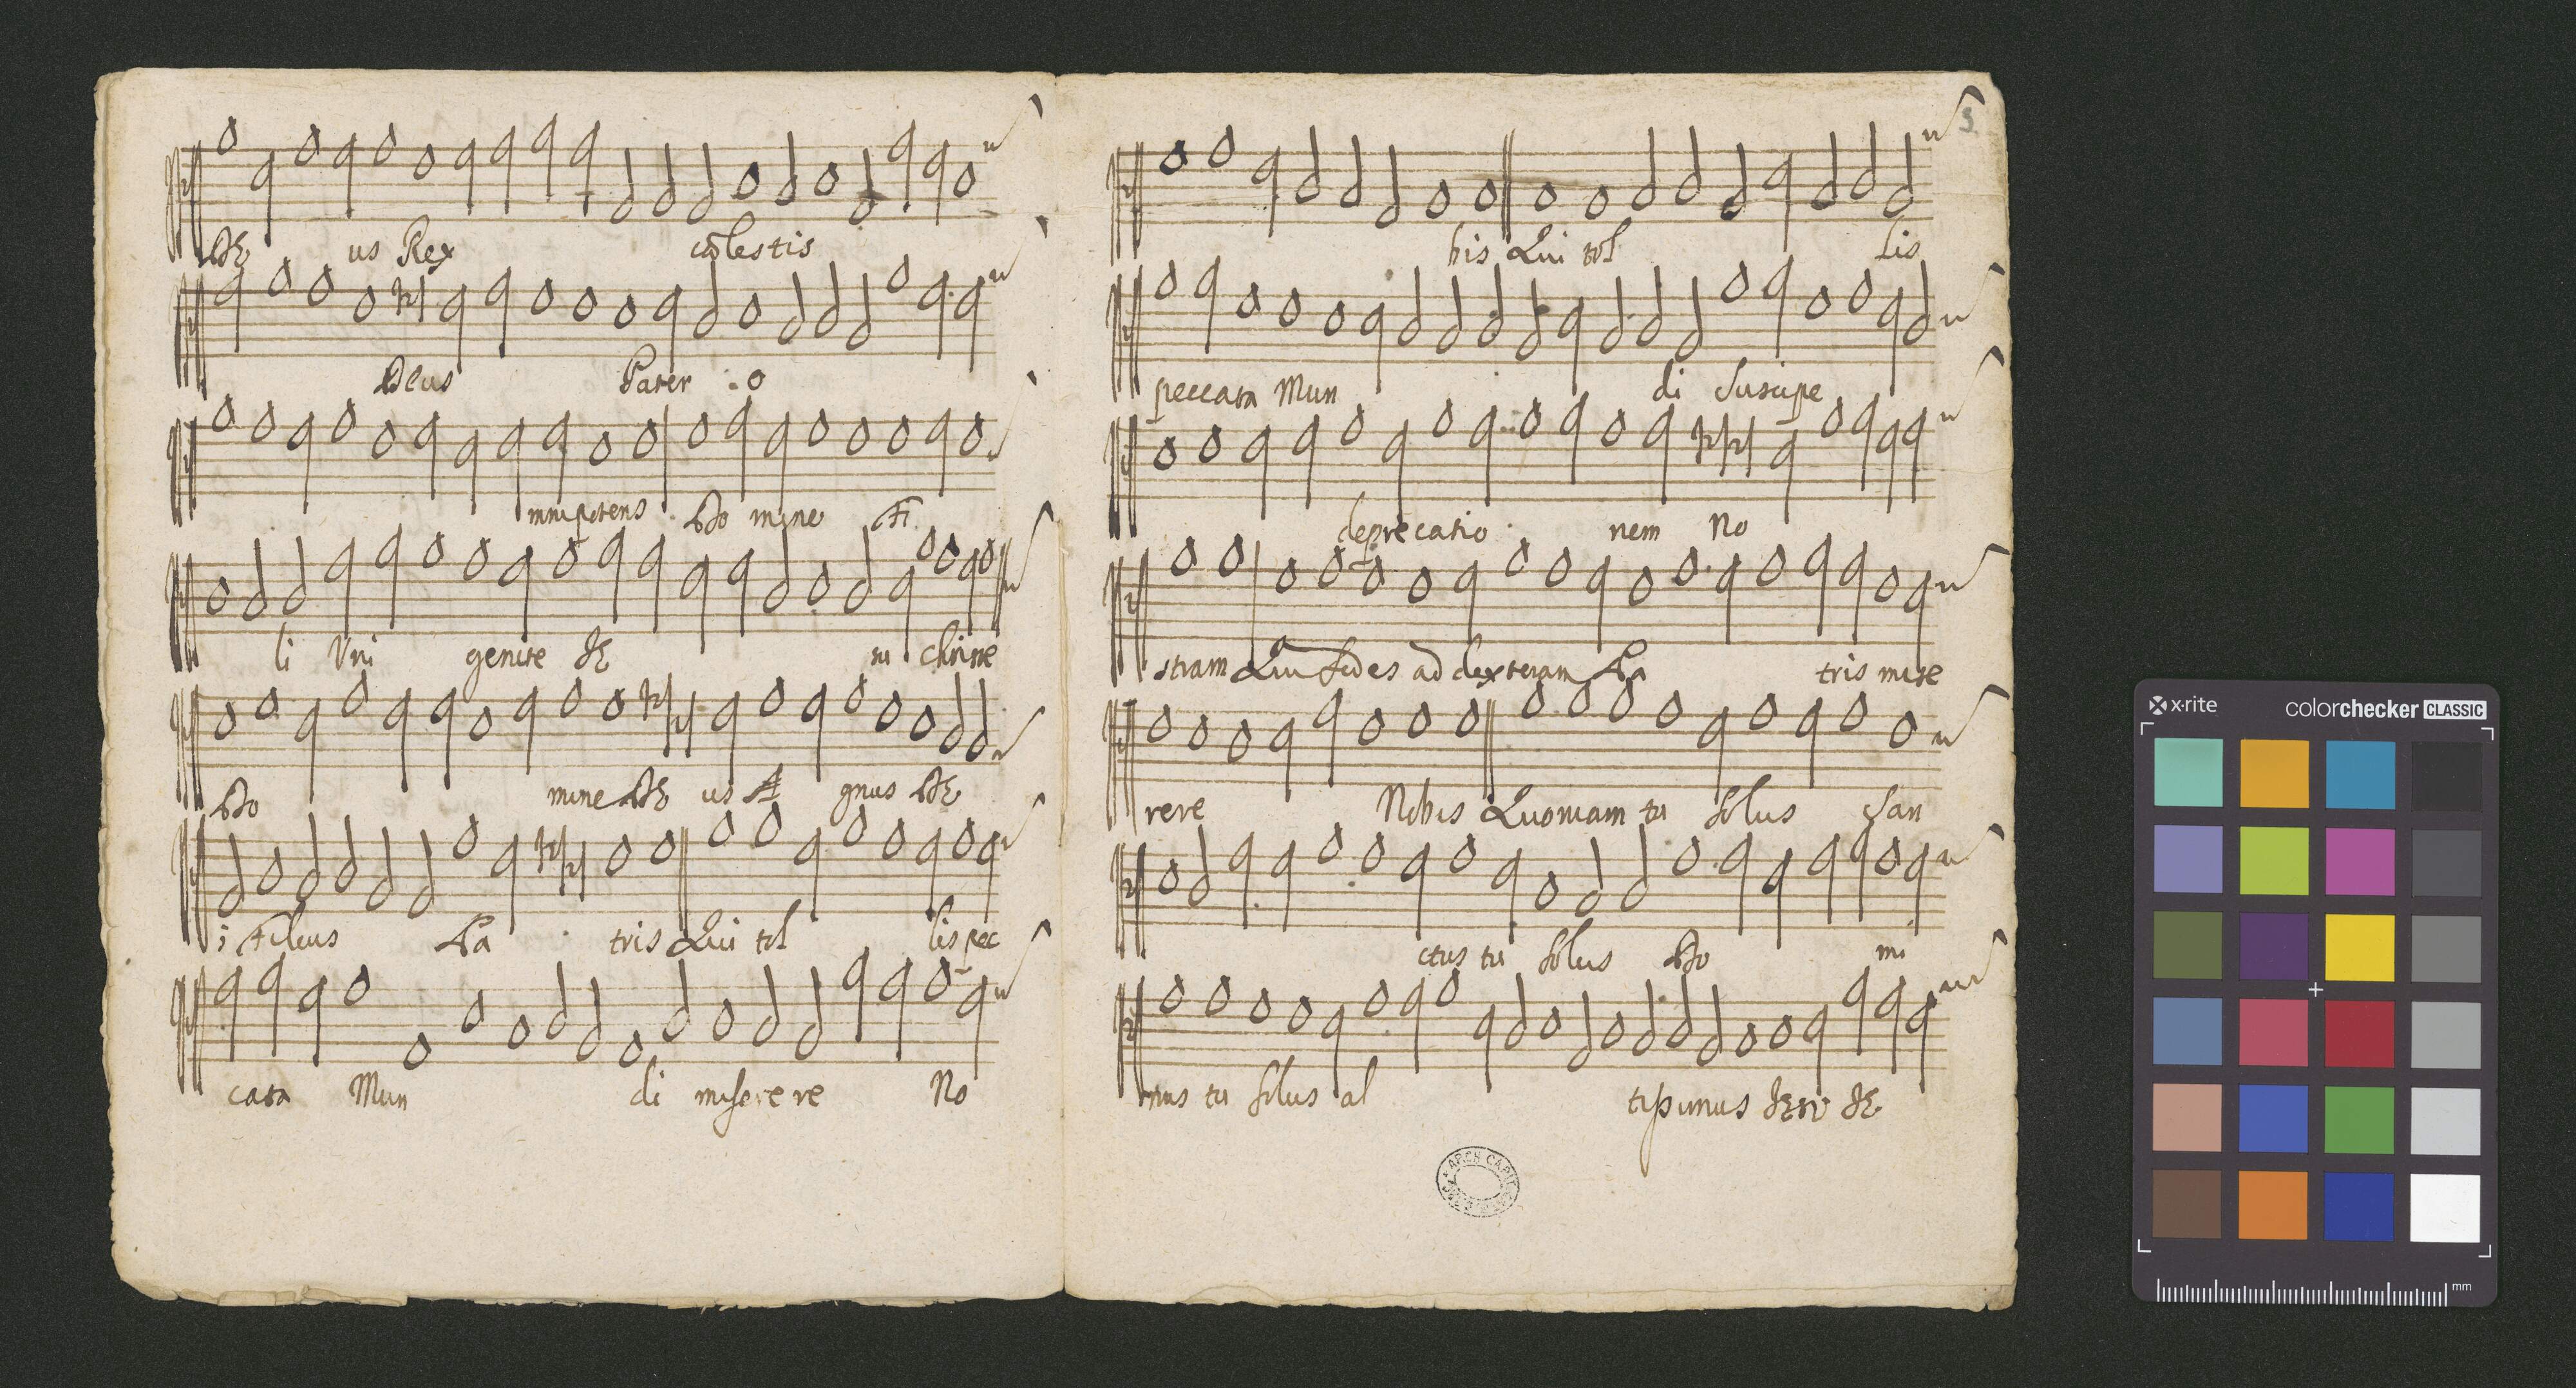 DE us Rex cœlestis
Deus Pater o
mnipotens Do mine Fi
li Vni genite JE su christe
Do mine DE us A gnus DE
i Filius Pa tris Qui tol lis pec
cata Mun di miserere No
3
bis Qui tol lis
peccata Mun di Suscipe
deprecatio nem No
stram Qui sedes ad dexteram Pa tris mise
rere Nobis Quoniam tu solus San
ctus tu solus Do mi
nus tu solus al tissimus JESV JE
ARCH CAPIT
x·rite colorchecker CLASSIC
mm